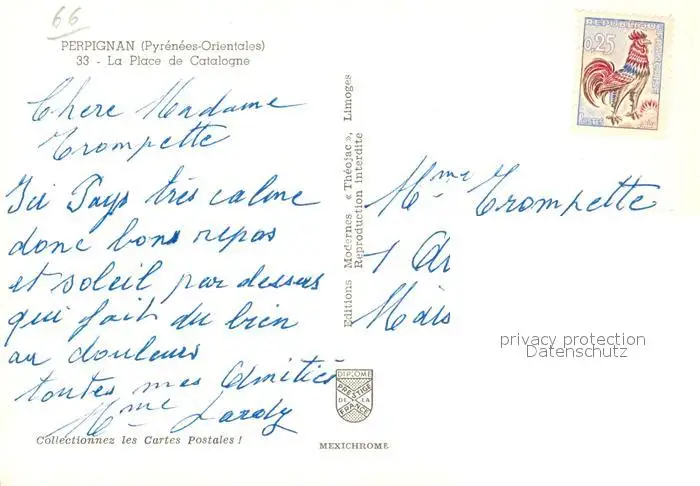 66
PERPIGNAN (Pyrénées-Orientales)
33 - La Place de Catalogne
Chere Madame
Trompette
Ici Pays très calme
donc bons repas
et soleil par dessus
qui fait du bien
au douleurs
toutes mes Amitiés
Mme
Collectionnez les Cartes Postales !
Editions Modernes « Théojac », Limoges
Reproduction interdite
REPUBLIQUE
0,25
POSTES
Mme Trompette
1
privacy protection
Datenschutz
DIPLOME
PRESTIGE
DE LA
FRANCE
MEXICHROME